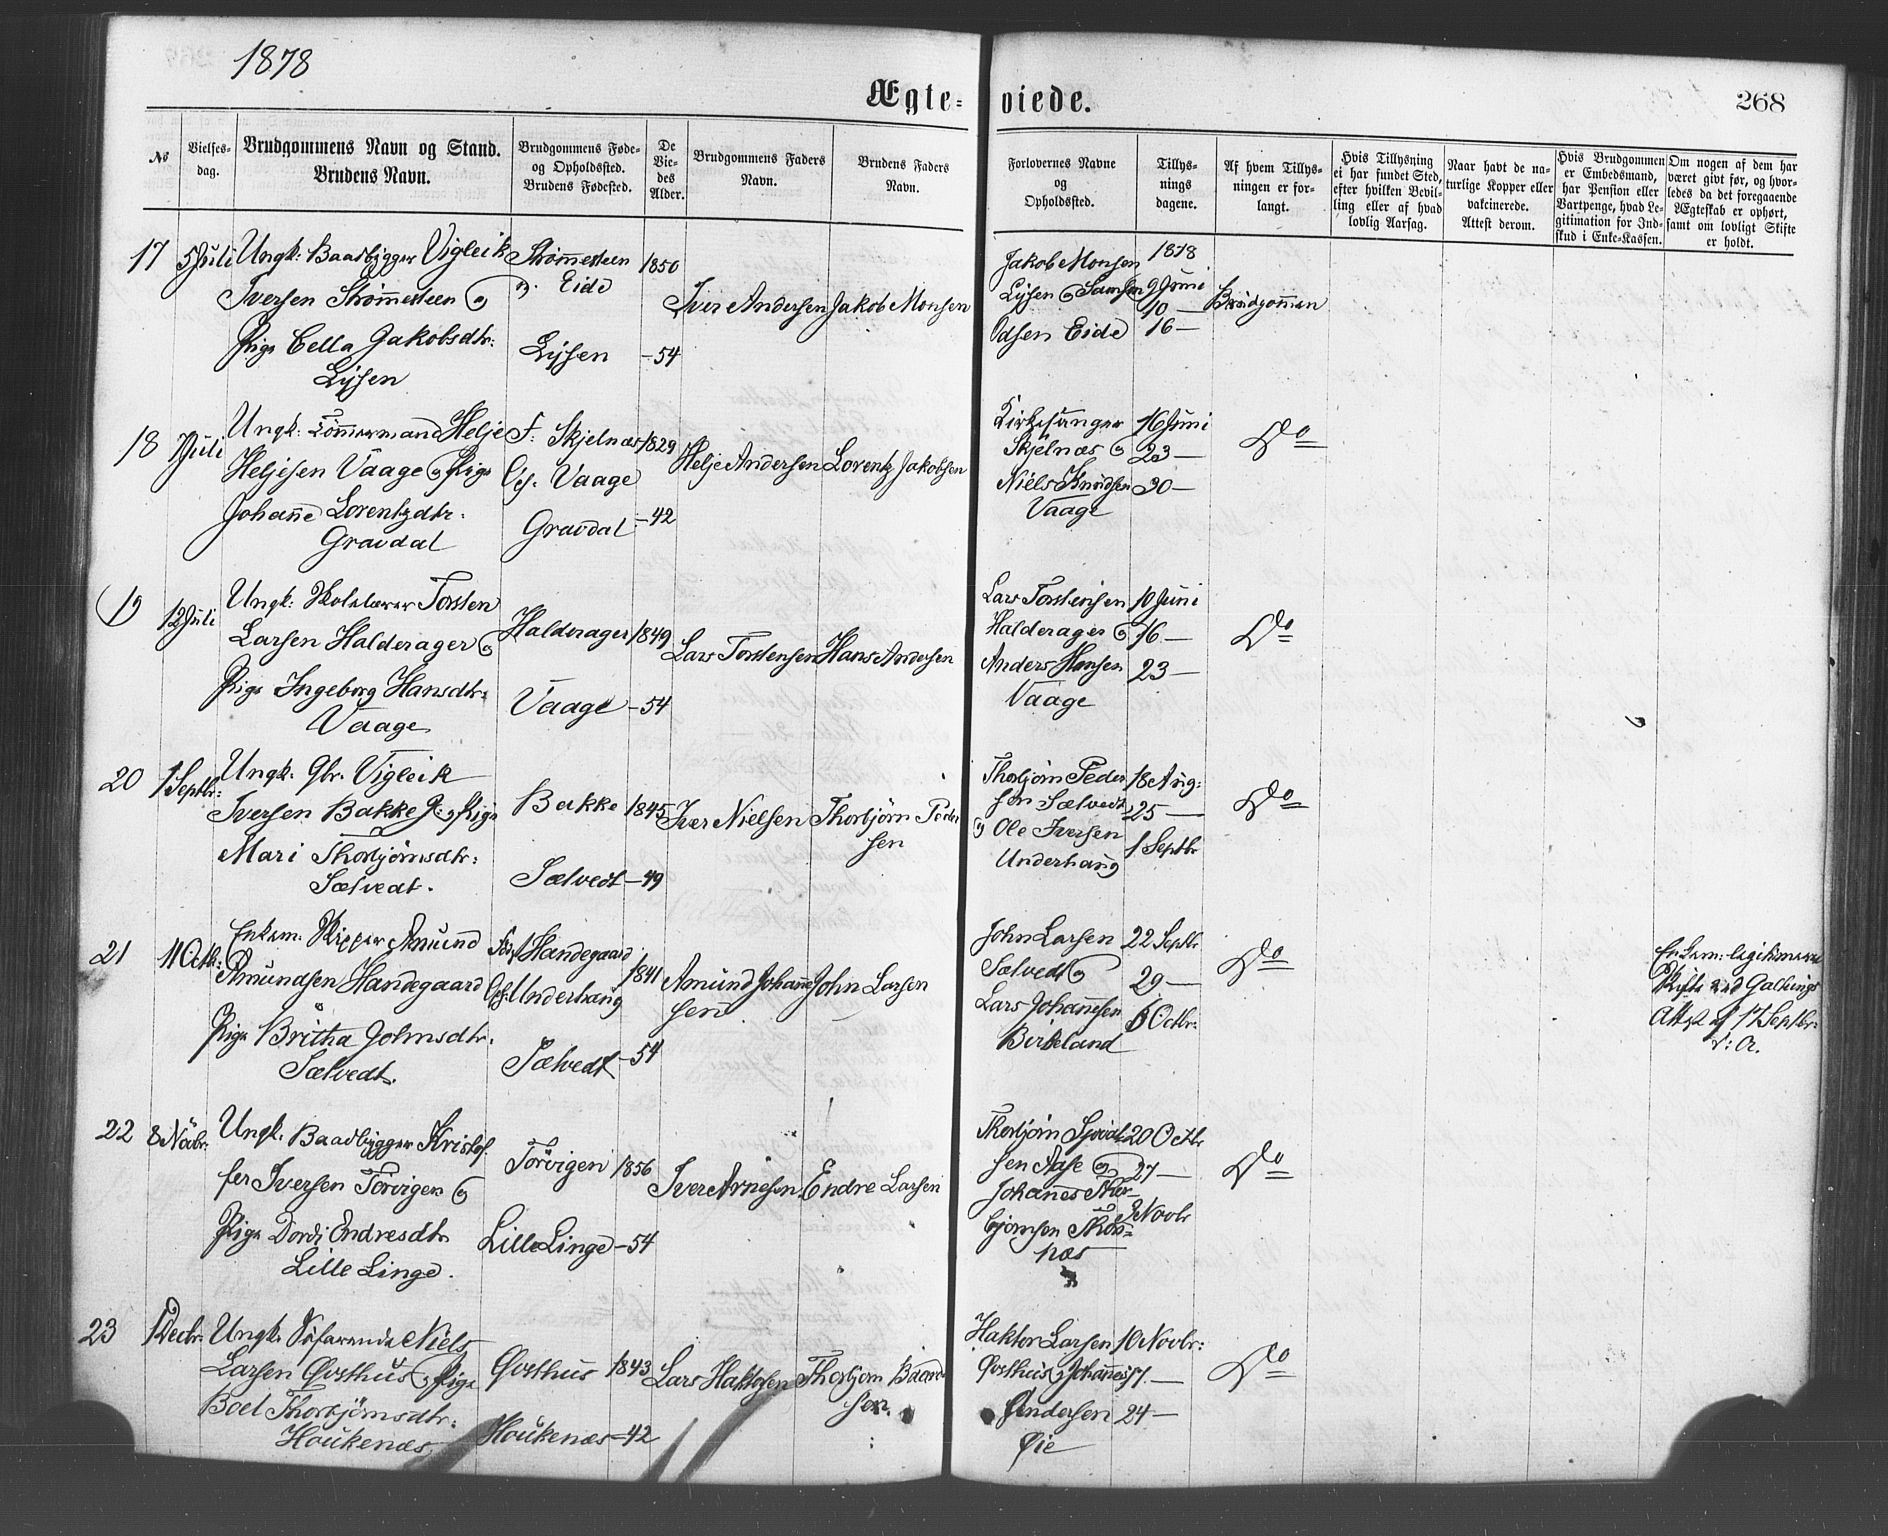 1878
Ægte-
viede.
268
№
Vielses-
dag.
Brudgommens Navn og Stand.
Brudens Navn.
Brudgommens Føde-
og Opholdssted.
Brudens Fødested.
De
Vie-
des
Alder.
Brudgommens Faders
Navn.
Brudens Faders
Navn.
Forlovernes Navne
og
Opholdssted.
Tillys-
nings
dagene.
Af hvem Tillys-
ningen er for-
langt.
Hvis Tillysning
ei har fundet Sted,
efter hvilken Bevil-
ling eller af hvad
lovlig Aarsag.
Naar havt de na-
turlige Kopper eller
vakcinerede.
Attest derom.
Hvis Brudgommen
er Embedsmand,
har Pension eller
Vartpenge, hvad Le-
gitimation for Ind-
skud i Enke-Kassen.
Om nogen af dem har
været givt før, og hvor-
ledes da det foregaaende
Ægteskab er ophørt,
samt om lovligt Skifte
er holdt.
17
5 Juli
Ungk: Baadbygger Vigleik
Iversen Strømesteen og
Pige Cella Jakobsdtr:
Lysen
Strømesteen
Eide
Lysen
1850
- 54
Iver Andersen
Jakob Monsen
Jakob Monsen
Lysen og Samson
Odsen Eide
1878
9 Juni
10 —
16 —
Brudgommen
18
Juli
Ungk: Tømmermand Helje
Heljesen Vaage og Pige
Johanne Lorentzdtr.
Gravdal
F. Skjelnæs
Vaage
Gravdal
1829
- 42
Helje Andersen
Lorentz Jakobsen
Kirkesanger
Skjelnæs og
Niels Knudsen
Vaage
16 Juni
23 —
30 —
Do
19
12 Juli
Ungk: Skolelærer Torsten
Larsen Halderager og
Pige Ingeborg Hansdtr:
Vaage
Halderager
Vaage
1849
- 54
Lars Torstensen
Hans Andersen
Lars Torstensen
Halderager og
Anders Hansen
Vaage
10 Juni
16 —
23 —
Do
20
1 Septbr:
Ungk: Gbr. Vigleik
Iversen Bakke og Pige
Mari Thorbjørnsdtr:
Sælvedt.
Bakke
Sælvedt
1845
- 49
Iver Nielsen
Thorbjørn Peder
sen
Thorbjørn Peder
sen Sælvedt
og Ole Iversen
Underhaug
18 Aug:
25 —
1 Septbr
Do
21
11 Octbr:
Enkem: Skipper Amund
Amundsen Handegaard
Pige Britha Johnsdtr.
Sælvedt.
Handegaard
Underhaug
Sælvedt
1841
- 54
Amund Johanne
sen
John Larsen
John Larsen
Sælvedt og
Lars Johannesen
Birkeland
22 Septbr
29 —
6 Octbr:
Do
Enkem: legitimerede
Skifte ved
Attest af 17 Septbr:
22
8 Novbr:
Ungk: Baadbygger Kristof-
fer Iversen Torvigen og
Pige Dordi Endresdtr
Lille Linge.
Torvigen
Lille Linge
1856
- 54
Iver Arnesen
Endre Larsen
Thorbjørn
sen Aase og
Johannes Thor-
bjørnsen Skors-
næs
20 Octbr
27 —
3 Novbr
Do
23
1 Decbr:
Ungk: Søfarende Niels
Larsen Qvsthus og Pige
Boel Thorbjørnsdtr:
Houkenæs
Qvsthus
Houkenæs
1843
- 42
Lars Haktorsen
Thorbjørn Baard-
sen.
Haktor Larsen
Qvsthus og Johannes
Andersen
Øie
10 Novbr:
17 —
24 —
Do